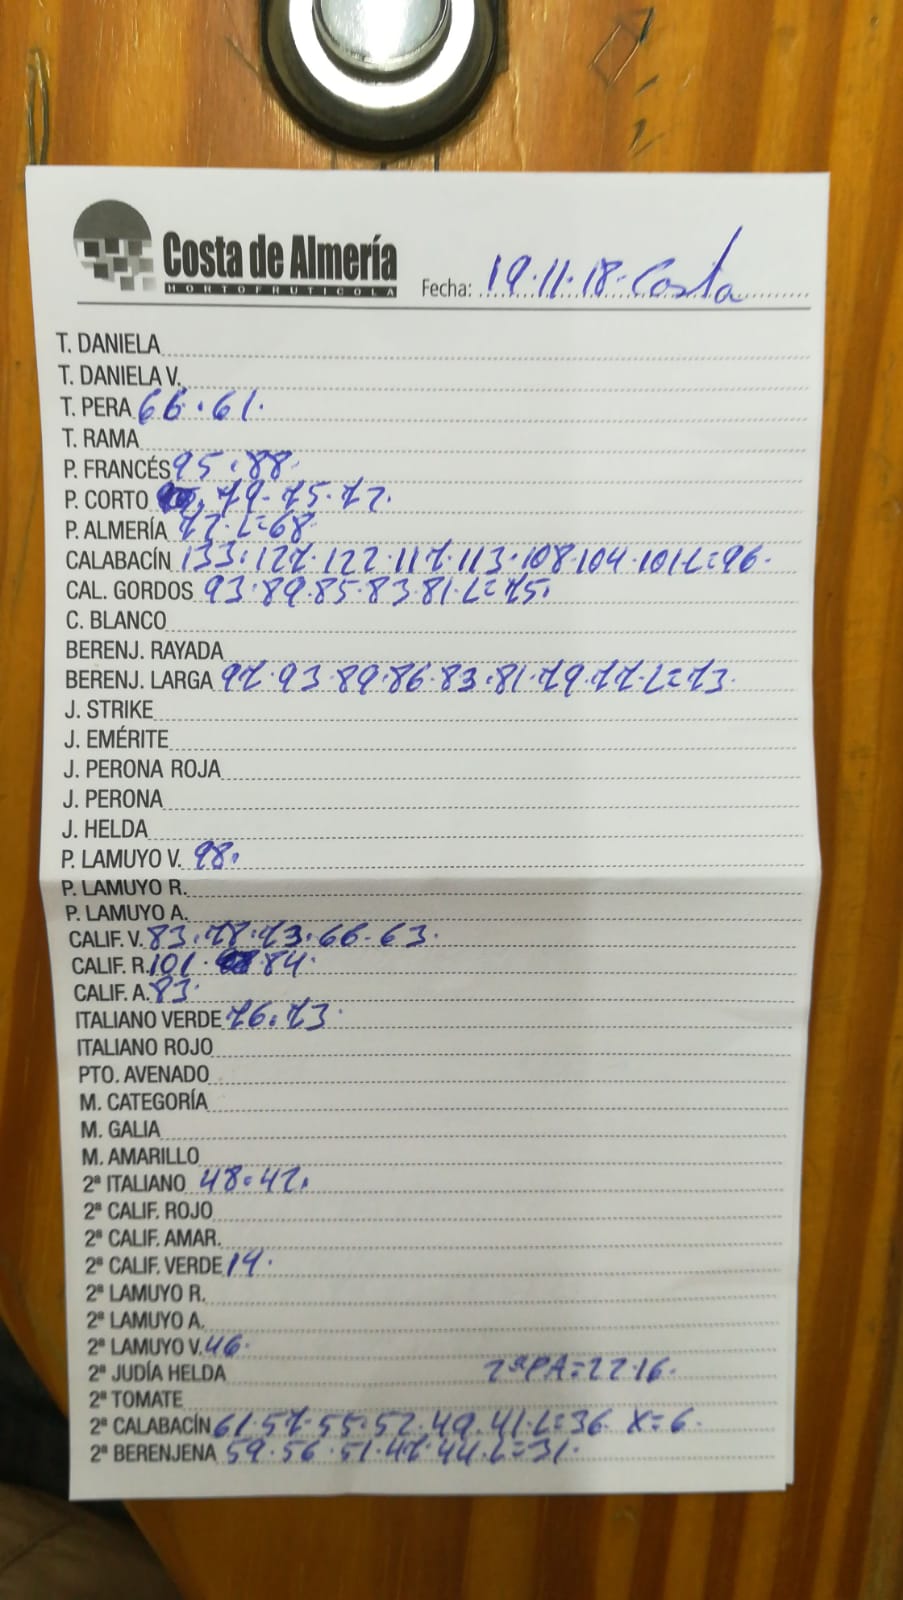 Costa de Almería
HORTOFRUTICOLA
Fecha: 19.11.18. Costa
T. DANIELA
T. DANIELA V.
T. PERA 66.61.
T. RAMA
P. FRANCÉS 95.88.
P. CORTO 79-75.72.
P. ALMERÍA 72.L=68
CALABACÍN 133.127.122.117.113.108.104.101.L=96.
CAL. GORDOS 93.89.85.83.81.L=75.
C. BLANCO
BERENJ. RAYADA
BERENJ. LARGA 97.93.89.86.83.81.79.77.L=73.
J. STRIKE
J. EMÉRITE
J. PERONA ROJA
J. PERONA
J. HELDA
P. LAMUYO V. 98.
P. LAMUYO R.
P. LAMUYO A.
CALIF. V. 83.78.73.66-63.
CALIF. R. 101. 84.
CALIF. A. 83.
ITALIANO VERDE 76.73.
ITALIANO ROJO
PTO. AVENADO
M. CATEGORÍA
M. GALIA
M. AMARILLO
2ª ITALIANO 48.42.
2ª CALIF. ROJO
2ª CALIF. AMAR.
2ª CALIF. VERDE 19.
2ª LAMUYO R.
2ª LAMUYO A.
2ª LAMUYO V. 46.
2ª JUDÍA HELDA 2ªPA=22.16.
2ª TOMATE
2ª CALABACÍN 61.57.55.52.49.41.L=36. X=6.
2ª BERENJENA 59.56.51.47.44.L=31.